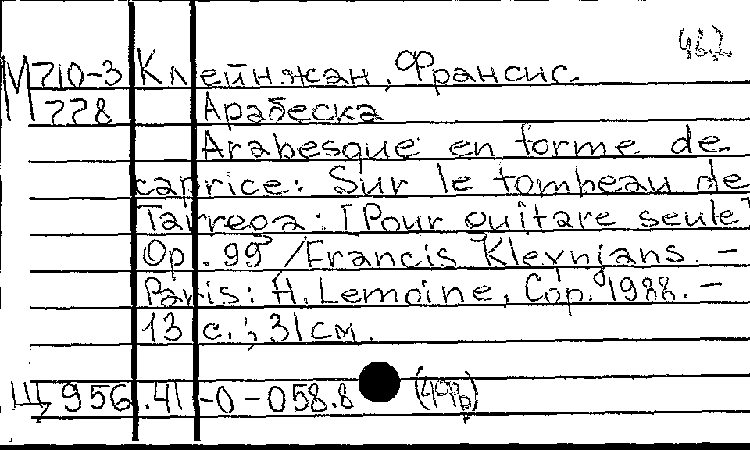 462
М710-3 Клейнжан, Франсис.
М778 Арабеска
Arabesque en forme de
caprice: Sur le tombeau de
Tarrega: [Pour guitare seule]
Op. 99 / Francis Kleynjans. –
Paris: H. Lemoine, Cop. 1988. –
13 с.; 31 см.
Щ 956.41-0-058.8 (49Ф)